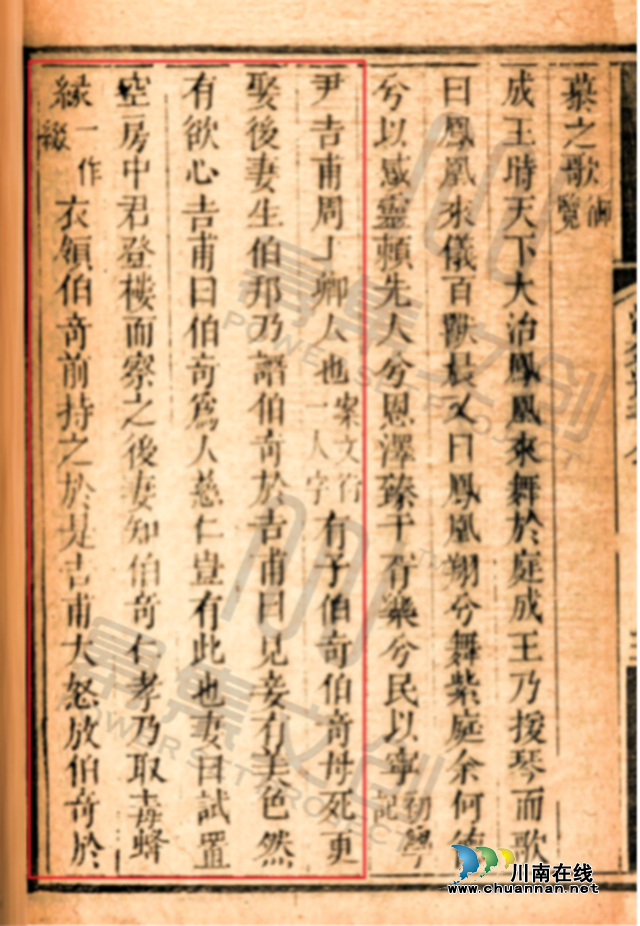 慕之歌御覽
成王時天下大治鳳凰來舞於庭成王乃援琴而歌
曰鳳凰來儀百獸晨又曰鳳凰翔兮舞紫庭余何德
兮以感靈賴先人兮恩澤臻于胥樂兮民以寧初學記
尹吉甫周上卿人也案文衍一人字有子伯奇伯奇母死更
娶後妻生伯邦乃譖伯奇於吉甫曰見妾有美色然
有欲心吉甫曰伯奇為人慈仁豈有此也妻曰試置
空房中君登樓而察之後妻知伯奇仁孝乃取毒蜂
緣一作綴衣領伯奇前持之於是吉甫大怒放伯奇於
尋集文创
POWERSET PROJECT
尋集文创
POWERSET PROJECT
川南在线
www.chuannan.net